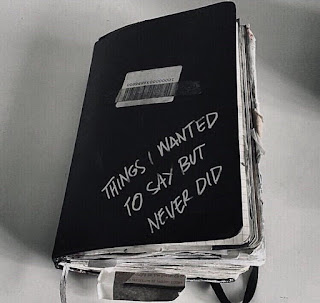 THINGS I WANTED
TO SAY BUT
NEVER DID